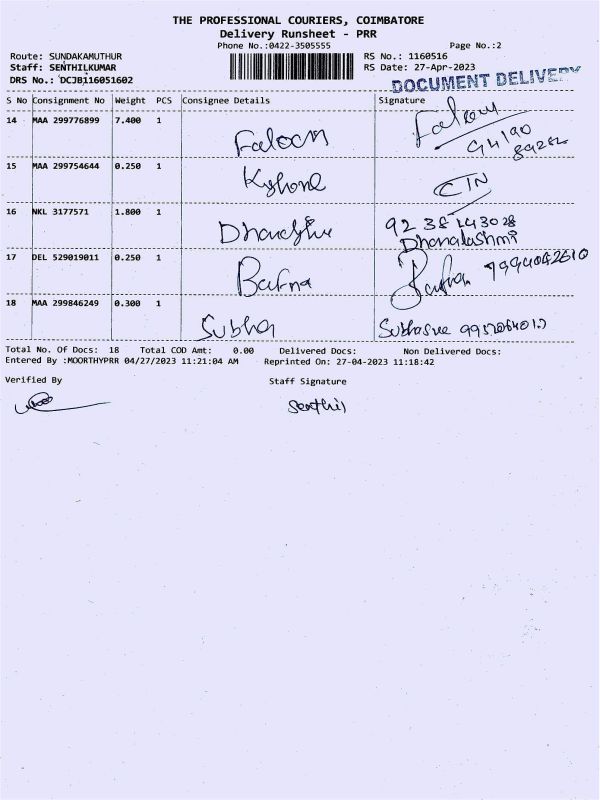 THE PROFESSIONAL COURIERS, COIMBATORE
Delivery Runsheet - PRR
Phone No.:0422-3505555 Page No.:2
Route: SUNDAKAMUTHUR RS No.: 1160516
Staff: SENTHILKUMAR RS Date: 27-Apr-2023
DRS No.: DCJB116051602 DOCUMENT DELIVERY
S No Consignment No Weight PCS Consignee Details Signature
14 MAA 299776899 7.400 1 Falcon
15 MAA 299754644 0.250 1
16 NKL 3177571 1.800 1
Dhanalashmi
17 DEL 529019011 0.250 1 Barna
18 MAA 299846249 0.300 1
Subha Subhasree
Total No. Of Docs: 18 Total COD Amt: 0.00 Delivered Docs: Non Delivered Docs:
Entered By :MOORTHYPRR 04/27/2023 11:21:04 AM Reprinted On: 27-04-2023 11:18:42
Verified By Staff Signature
Senthil